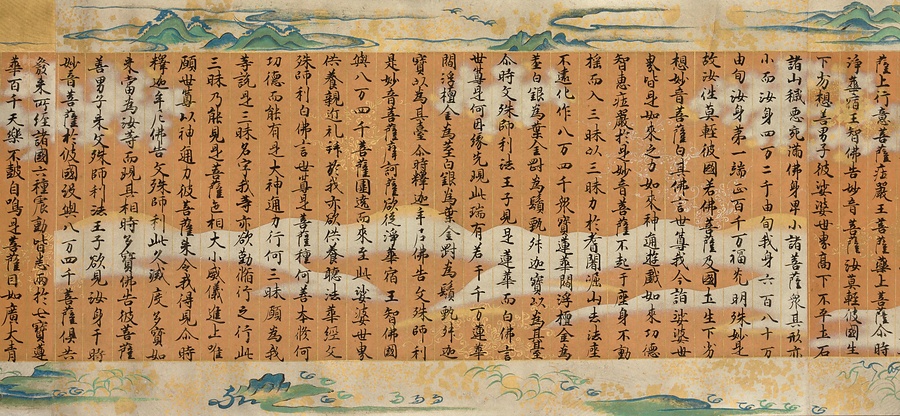 薩上行意菩薩莊嚴王菩薩藥上菩薩尒時
淨華宿王智佛告妙音菩薩汝莫輕彼國生
下劣想善男子彼娑婆世界高下不平土石
諸山穢惡充滿佛身卑小諸菩薩衆其形亦
小而汝身四万二千由旬我身六百八十万
由旬汝身第一端正百千万福光明殊妙是
故汝往莫輕彼國若佛菩薩及國土生下劣
想妙音菩薩白其佛言世尊我今詣娑婆世
界皆是如來之力如來神通遊戲如來功德
智恵莊嚴於是妙音菩薩不起于座身不動
揺而入三昧以三昧力於耆闍崛山去法座
不遠化作八万四千衆寶蓮華閻浮檀金為
莖白銀為葉金剛為鬚甄叔迦寶以為其臺
尒時文殊師利法王子見是蓮華而白佛言
世尊是何因緣先現此瑞有若干千万蓮華
閻浮檀金為莖白銀為葉金剛為鬚甄叔迦
寶以為其臺尒時釋迦牟尼佛告文殊師利
是妙音菩薩摩訶薩欲從淨華宿王智佛國
與八万四千菩薩圍遶而來至此娑婆世界
供養親近礼拜於我亦欲供養聽法華經文
殊師利白佛言世尊是菩薩種何善本修何
功德而能有是大神通力行何三昧願為我
等說是三昧名字我等亦欲勤脩行之行此
三昧乃能見是菩薩色相大小威儀進止唯
願世尊以神通力彼菩薩來令我得見尒時
釋迦牟尼佛告文殊師利此久滅度多寶如
來當為汝等而現其相時多寶佛告彼菩薩
善男子來文殊師利法王子欲見汝身于時
妙音菩薩於彼國沒與八万四千菩薩俱共
發來所經諸國六種震動皆悉雨於七寶蓮
華百千天樂不鼓自鳴是菩薩目如廣大青